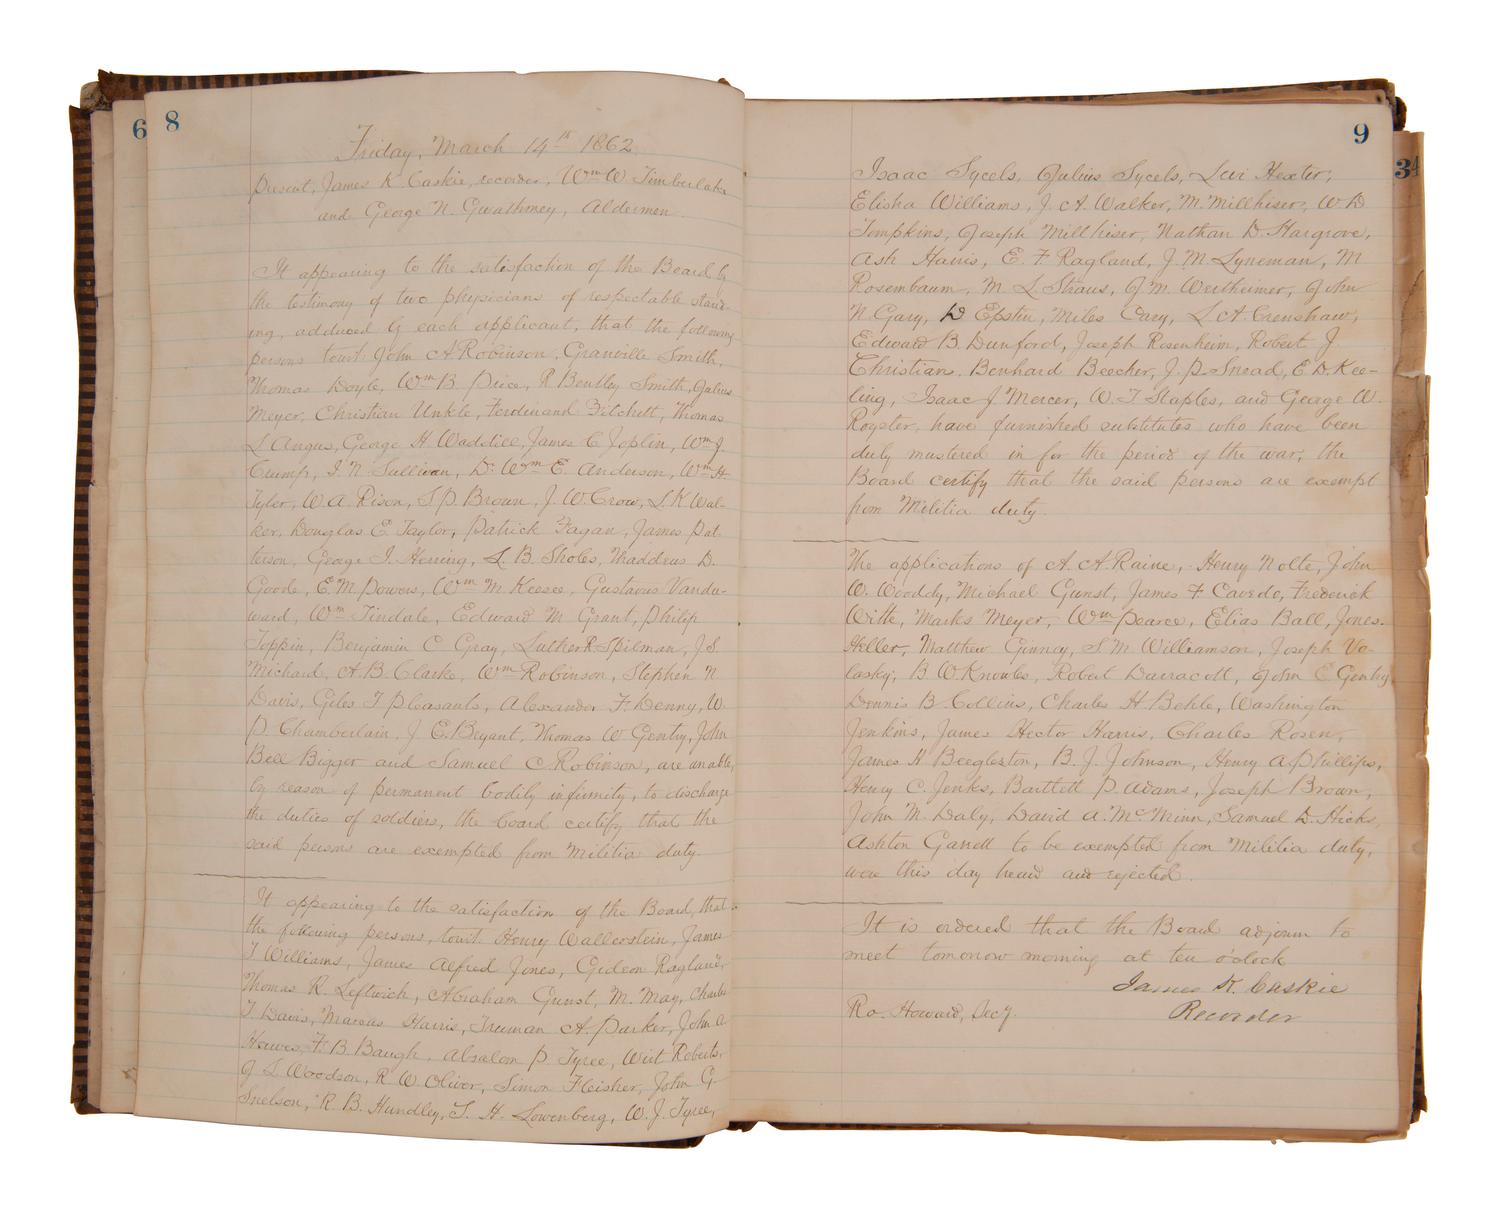 6
8
Friday, March 14th 1862.
Present, James K Caskie, recorder, Wm W Timberlake
and George N. Gwathmey, Aldermen.
It appearing to the satisfaction of the Board by
the testimony of two physicians of respectable stand-
ing, adduced by each applicant, that the following
persons towit: John A Robinson, Granville Smith,
Thomas Doyle, Wm B. Price, R Bentley Smith, Julius
Meyer, Christian Unkle, Ferdinand Fitchett, Thomas
L Angus, George H. Waddill, James C Joplin, Wm J.
Crump, J. N. Sullivan, Dr Wm E. Anderson, Wm H.
Tyler, W. A. Rison, S. P. Brown, J. W. Crow, L. K Wal-
ker, Douglas E Taylor, Patrick Fagan, James Pat-
terson, George I. Herring, L. B. Sholes, Thaddeus D.
Goode, E. M. Powers, Wm M. Keesee, Gustavus Vande-
ward, Wm Tindale, Edward M Grant, Philip
Toppin, Benjamin C Gray, Luther R Spilman, J. S.
Michard, A. B. Clarke, Wm Robinson, Stephen N
Davis, Giles T Pleasants, Alexander F. Denny, W.
P. Chamberlain, J. E. Bryant, Thomas W Gentry, John
Bell Bigger and Samuel C. Robinson, are unable,
by reason of permanent bodily infirmity, to discharge
the duties of soldiers, the board certify that the
said persons are exempted from Militia duty.
It appearing to the satisfaction of the Board, that
the following persons, towit: Henry Wallerstein, James
T Williams, James Alfred Jones, Gideon Ragland,
Thomas R. Leftwich, Abraham Gunst, M. May, Charles
T. Davis, Marcus Harris, Truman A. Parker, John A
Howes, F. B. Baugh, Absalom P. Tyree, Wirt Roberts,
J L Woodson, R W Oliver, Simon Fleisher, John G
Snelson, R. B. Hundley, S. H. Lowenberg, W. J. Tyree,
9
34
Isaac Sycels, Julius Sycels, Levi Hexter,
Elisha Williams, J. A. Walker, M. Millhiser, W. D
Tompkins, Joseph Millhiser, Nathan D. Hargrove,
Ash Harris, E. F Ragland, J. M. Lyneman, M
Rosembaum, M. L Straus, J. M. Wertheimer, John
N. Gary, D Epstin, Miles Cary, L A Crenshaw,
Edward B. Dunford, Joseph Rosenheim, Robert J
Christian, Benhard Beecher, J. P. Snead, E. D. Kee-
ling, Isaac J Mercer, W. T. Staples, and George W.
Royster, have furnished substitutes who have been
duly mustered in for the period of the war, the
Board certify that the said persons are exempt
from Militia duty.
The applications of A. A. Raine, Henry Nolte, John
W. Wooddy, Michael Gunst, James F Cavedo, Frederick
Witte, Marks Meyer, Wm Pearce, Elias Ball, Jones.
Heller, Matthew Ginnoy, S. M. Williamson, Joseph Vo-
lasky, B W Knowles, Robert Darracott, John E Gentry
Dennis B. Collins, Charles H. Behle, Washington
Jenkins, James Hector Harris, Charles Rosen,
James H Beegleston, B. J. Johnson, Henry A Phillips,
Henry C. Jenks, Bartlett P. Adams, Joseph Brown,
John M. Daly, David A. McMinn, Samuel D. Hicks,
Ashton Garrett to be exempted from Militia duty,
were this day heard and rejected.
It is ordered that the Board adjourn to
meet tomorrow morning at ten o'clock
James K. Caskie
Ro. Howard, Secy.
Recorder